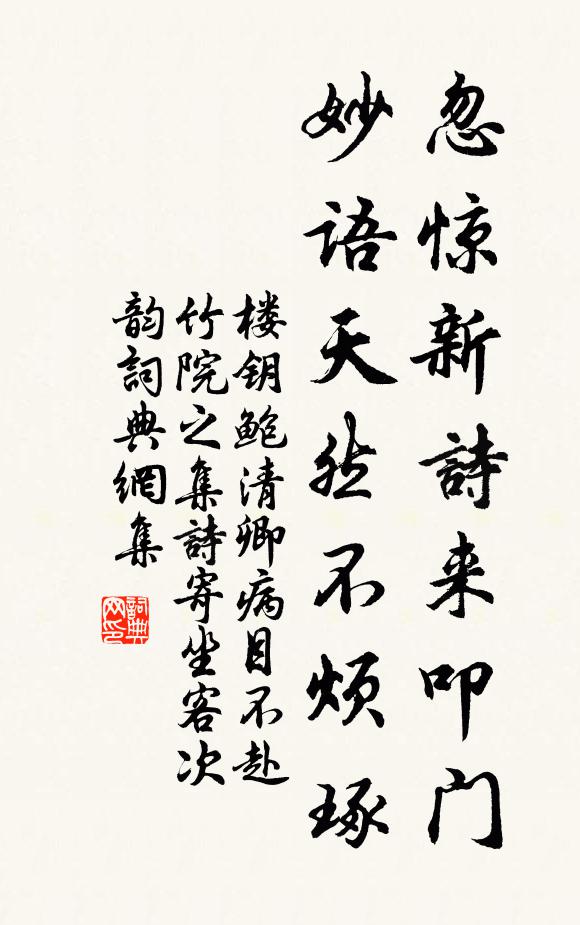 忽惊新詩来叩门
妙語天然不烦琢
楼钥鲍清卿病目不赴
竹院之集詩寄坐客次
韵詞典網集
詞典
网印